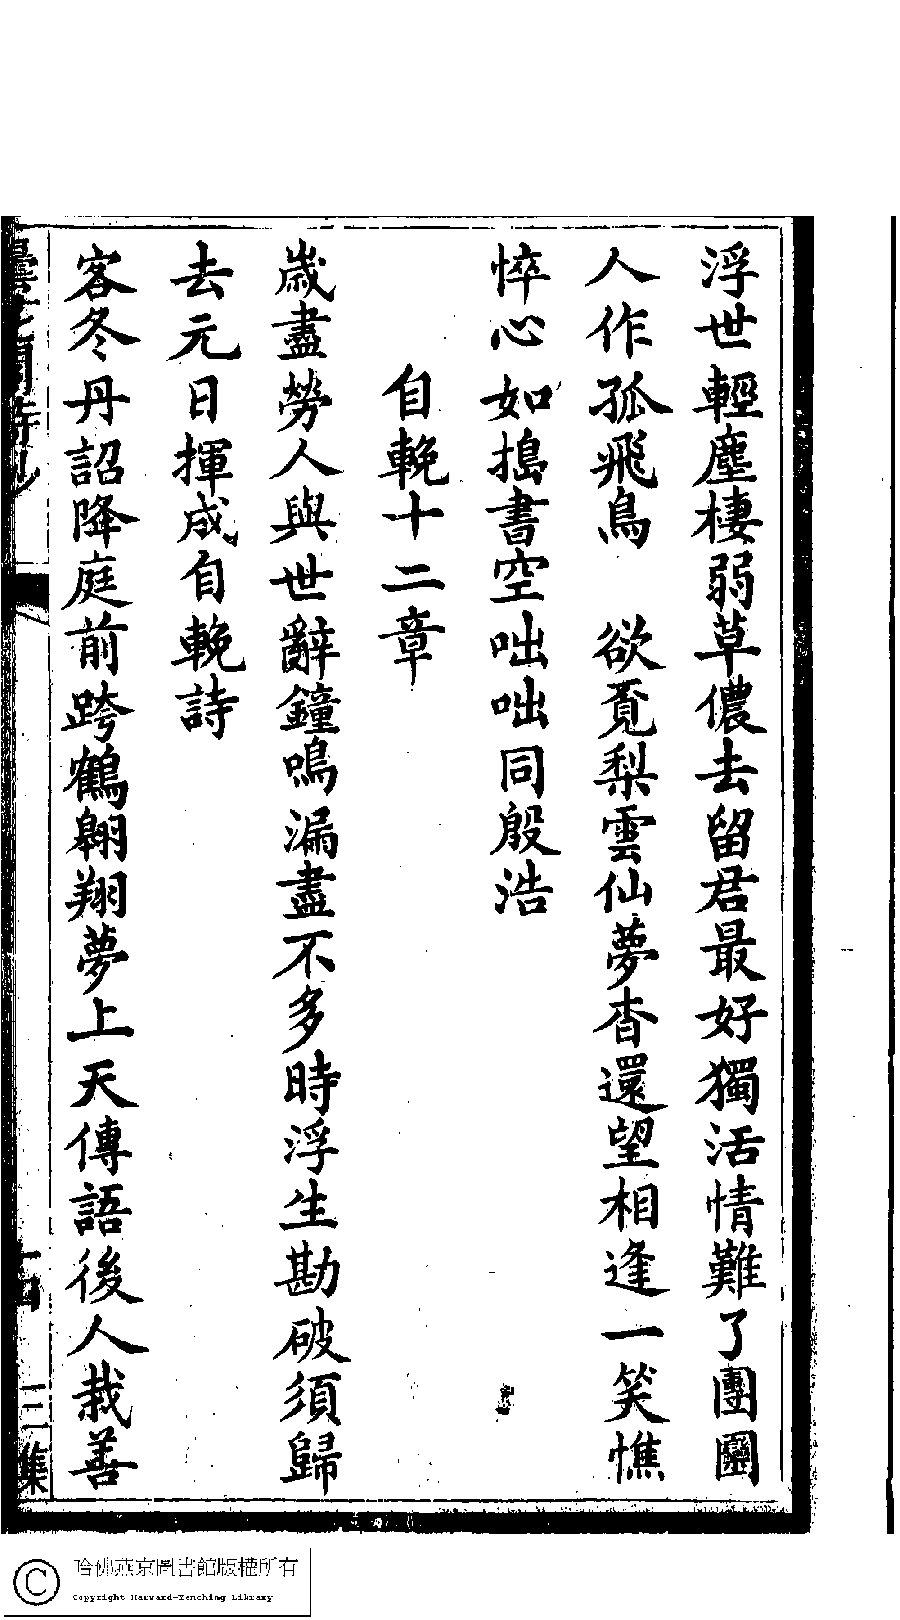 浮世輕塵棲弱草儂去留君最好獨活情難了團圞
人作孤飛鳥　欲覓梨雲仙夢杳還望相逢一笑憔
悴心如搗書空咄咄同殷浩
自輓十二章
歲盡勞人與世辭鐘鳴漏盡不多時浮生勘破須歸
去元日揮成自輓詩
客冬丹詔降庭前跨鶴翱翔夢上天傳語後人栽善
曇花閣詩鈔
十四
三集
哈佛燕京圖書館版權所有
Copyright Harvard-Yenching Library